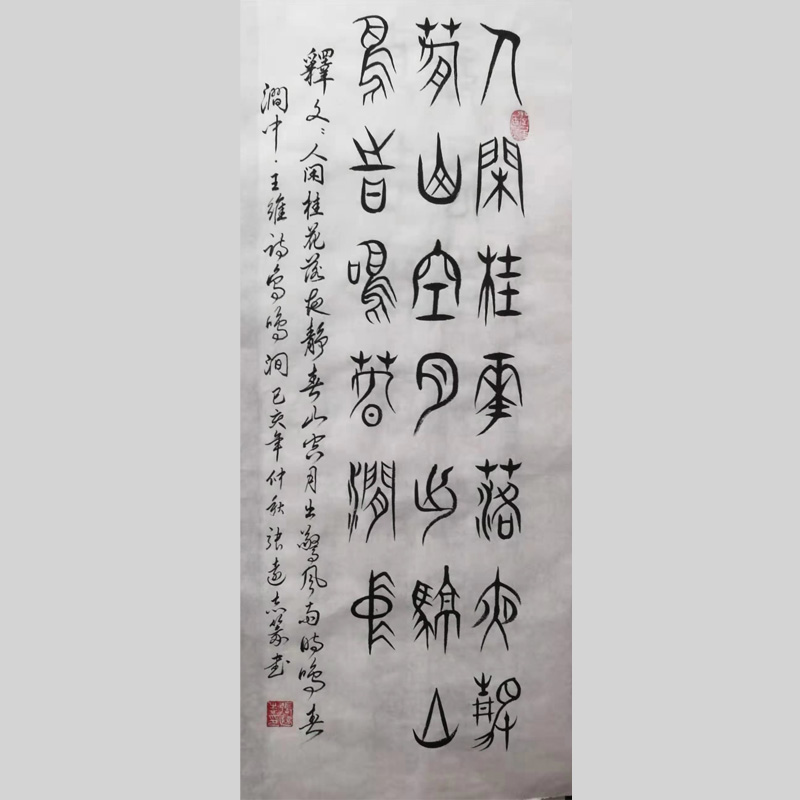 人閑桂華落夜靜
春山空月出驚山
鳥旹鳴春澗中
釋文：人闲桂花落夜靜春山空月出驚时鳴春
澗中．王維詩鳥鳴澗 己亥年仲秋 張遠志篆書